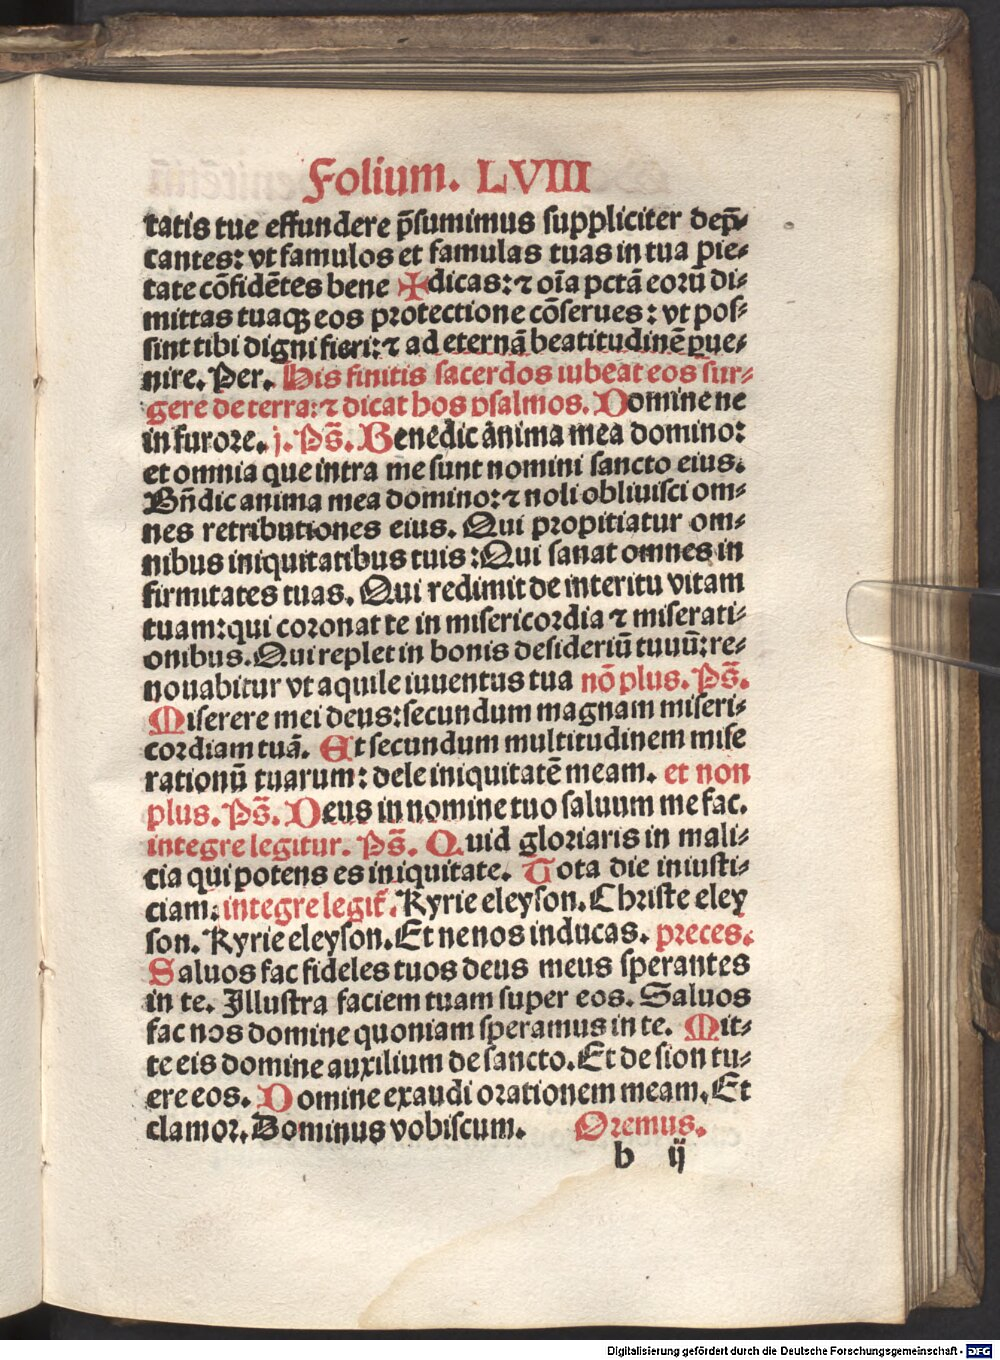 Folium. LVIII
tatis tue effundere p̄sumimus suppliciter dep̄-
cantes: vt famulos et famulas tuas in tua pie-
tate cōfidētes bene ✠dicas: ⁊ oīa pctā eorū di-
mittas tuaqꝫ eos protectione cōserues: vt pos-
sint tibi digni fieri: ⁊ ad eternā beatitudinē ꝑue-
nire. Per. His finitis sacerdos iubeat eos sur-
gere de terra: ⁊ dicat hos psalmos. Domine ne
in furore. j. Ps̄. Benedic anima mea domino:
et omnia que intra me sunt nomini sancto eius.
Bn̄dic anima mea domino: ⁊ noli obliuisci om-
nes retributiones eius. Qui propitiatur om-
nibus iniquitatibus tuis: Qui sanat omnes in
firmitates tuas. Qui redimit de interitu vitam
tuam: qui coronat te in misericordia ⁊ miserati-
onibus. Qui replet in bonis desideriū tuuū: re-
nouabitur vt aquile iuuentus tua nō plus. Ps̄.
Miserere mei deus: secundum magnam miseri-
cordiam tuā. Et secundum multitudinem mise
rationū tuarum: dele iniquitatē meam. et non
plus. Ps̄. Deus in nomine tuo saluum me fac.
integre legitur. Ps̄. Quid gloriaris in mali-
cia qui potens es iniquitate. Tota die iniusti-
ciam: integre legit̄. Kyrie eleyson. Christe eley
son. Kyrie eleyson. Et ne nos inducas. preces.
Saluos fac fideles tuos deus meus sperantes
in te. Illustra faciem tuam super eos. Saluos
fac nos domine quoniam speramus in te. Mit-
te eis domine auxilium de sancto. Et de sion tu-
ere eos. Domine exaudi orationem meam. Et
clamor. Dominus vobiscum. Oremus.
b ij
Digitalisierung gefördert durch die Deutsche Forschungsgemeinschaft - DFG